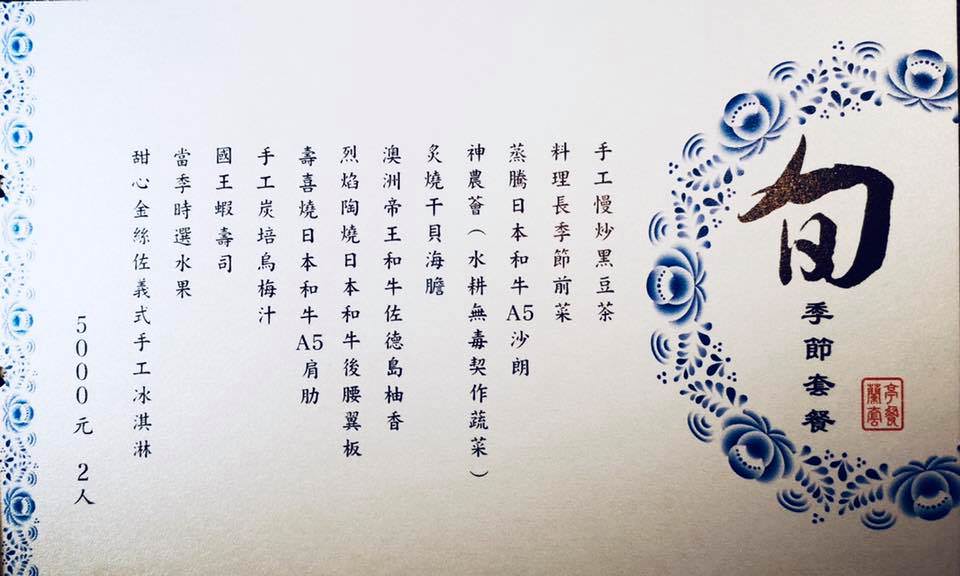 旬
季節套餐
蘭亭套餐
手工慢炒黑豆茶
料理長季節前菜
蒸騰日本和牛A5沙朗
神農薈（水耕無毒契作蔬菜）
炙燒干貝海膽
澳洲帝王和牛佐德島柚香
烈焰陶燒日本和牛後腰翼板
壽喜燒日本和牛A5肩肋
手工炭培烏梅汁
國王蝦壽司
當季時選水果
甜心金絲佐義式手工冰淇淋
5000元 2人